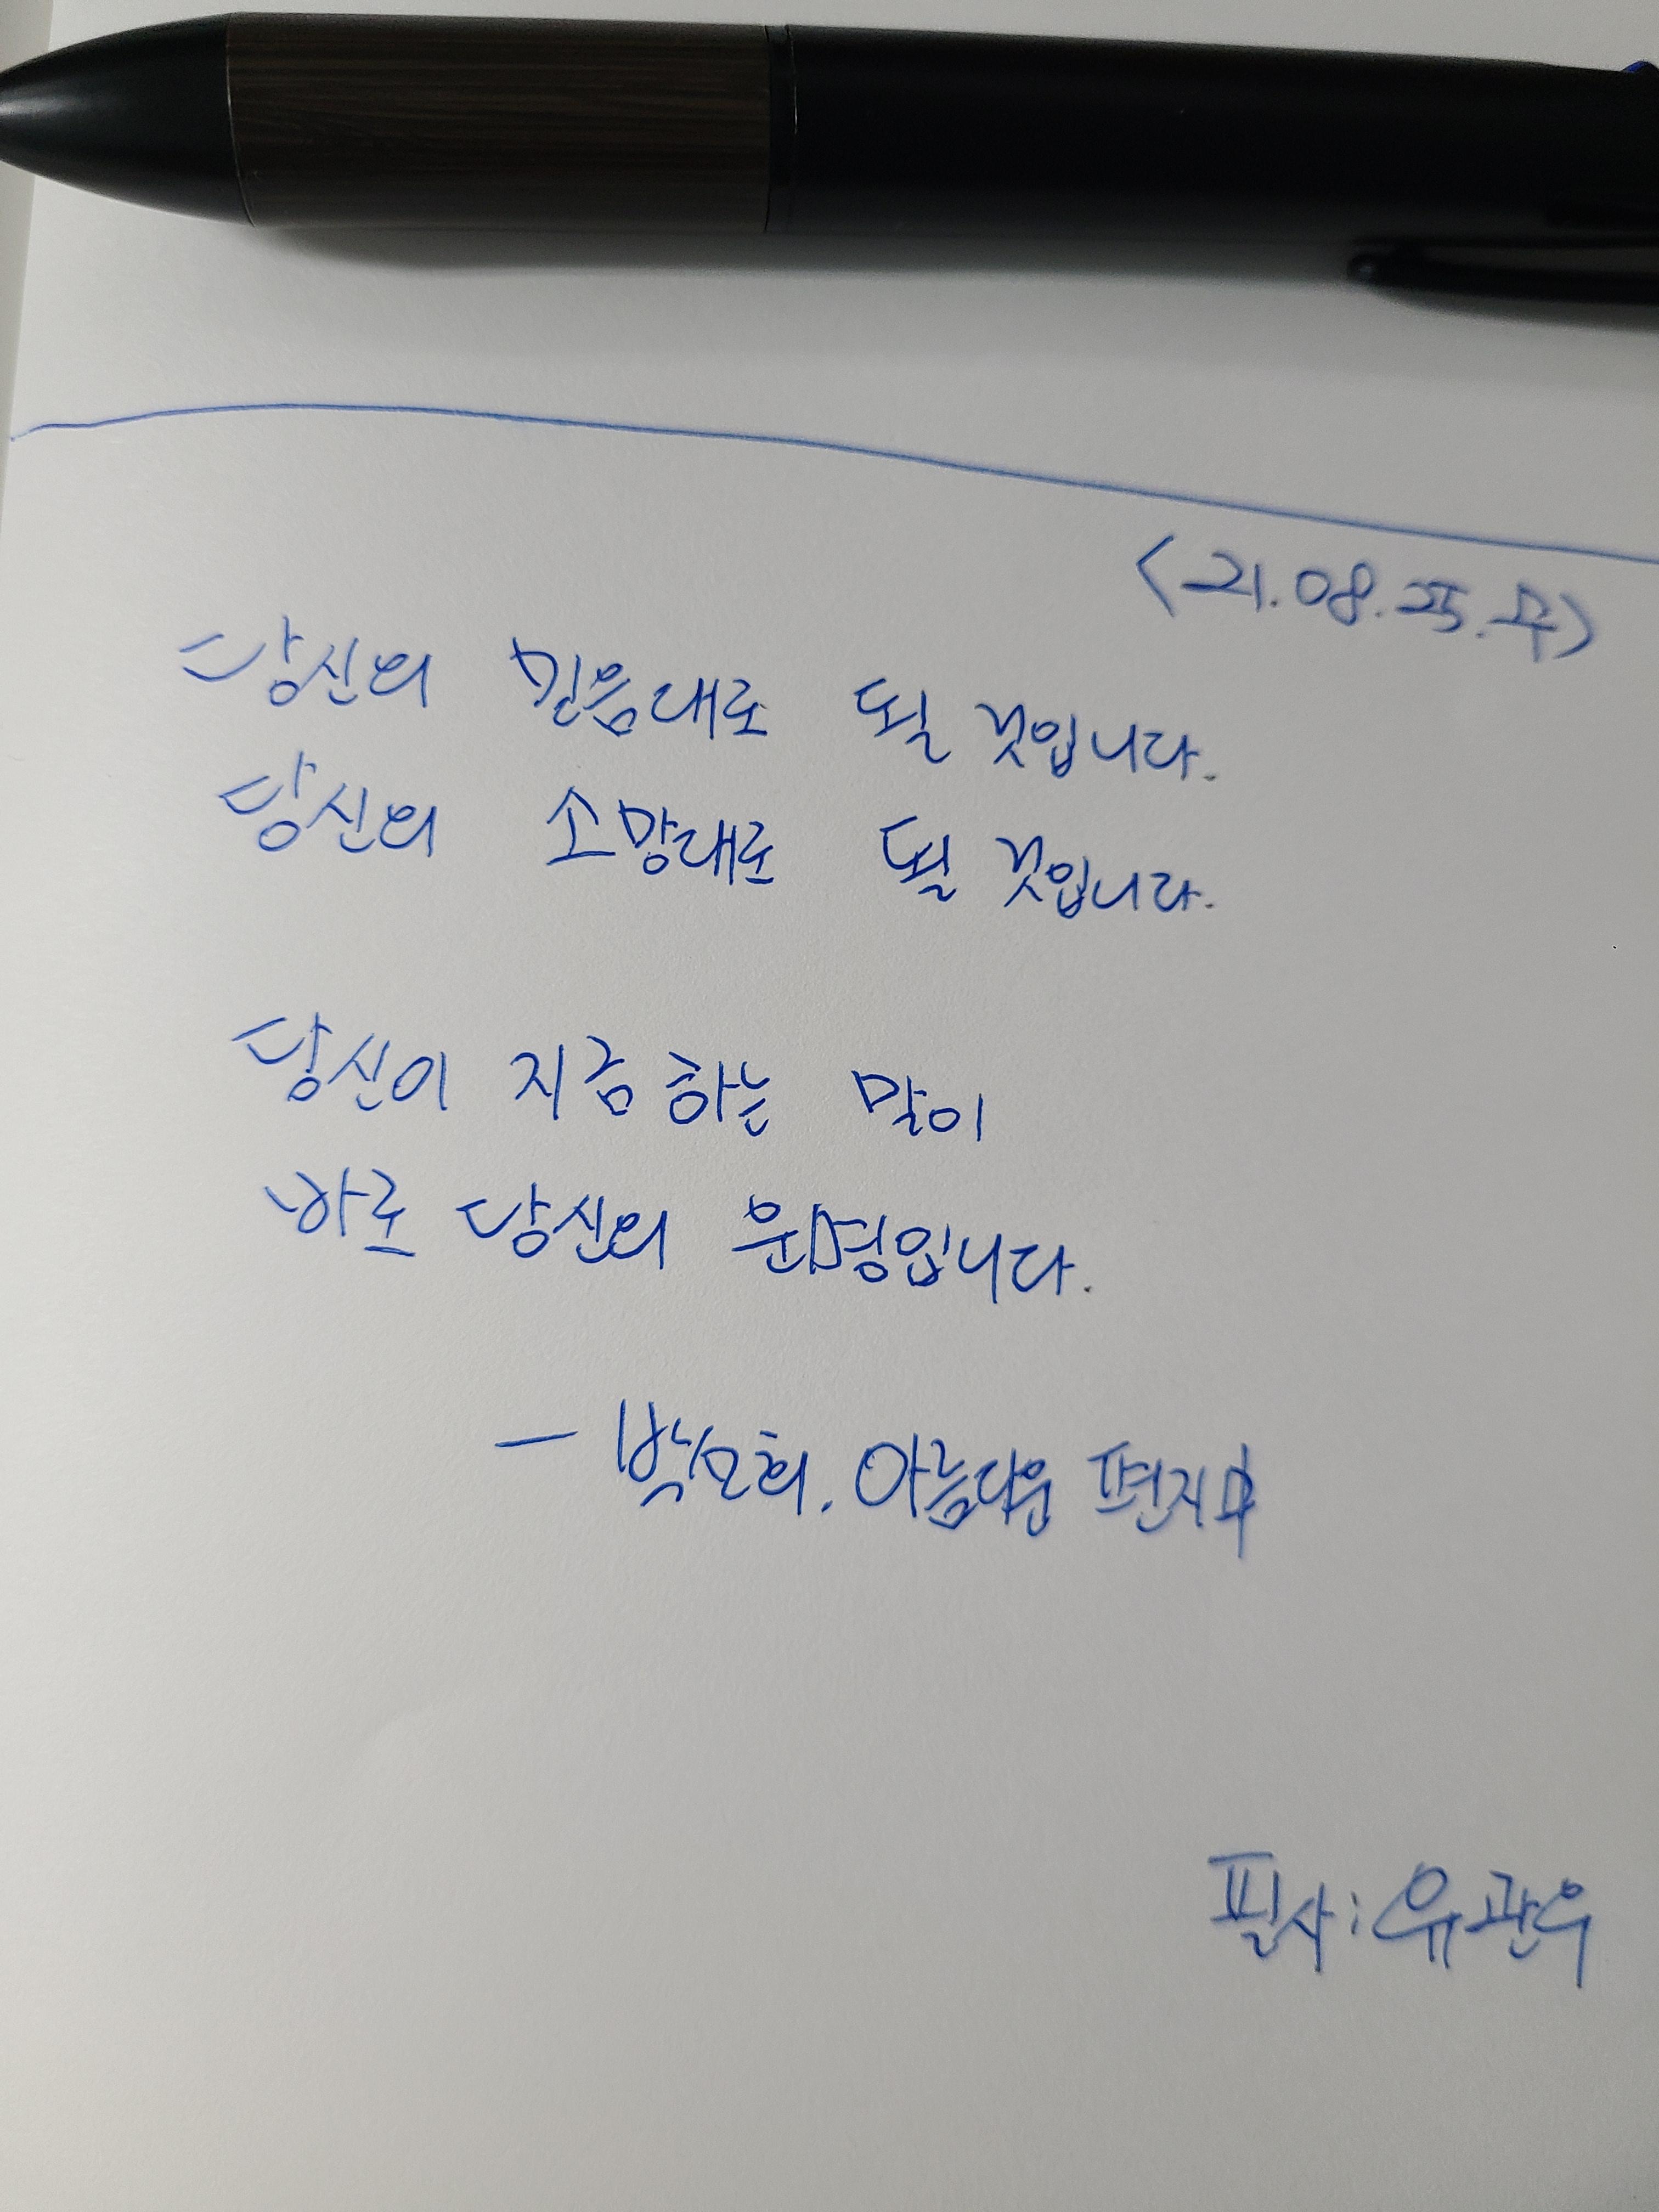 <21.08.25.수>
당신의 믿음대로 될 것입니다.
당신의 소망대로 될 것입니다.
당신이 지금 하는 말이
바로 당신의 운명입니다.
- 아름다운 편지
필사: 유관우